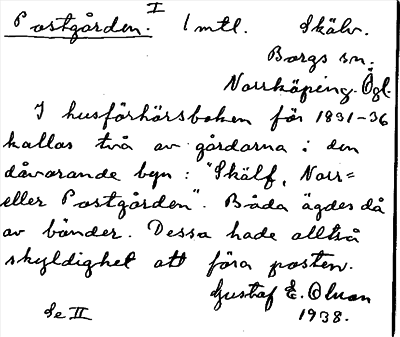 Postgården. I 1 mtl. Skälv.
Borgs sn.
Norrköping. Ögl.
I husförhörsboken för 1831-36
kallas två av gårdarna i den
dåvarande byn: "Skälf, Norr=
eller Postgården". Båda ägdes då
av bönder. Dessa hade alltså
skyldighet att föra posten.
Gustaf E. Olson
Se II 1938.